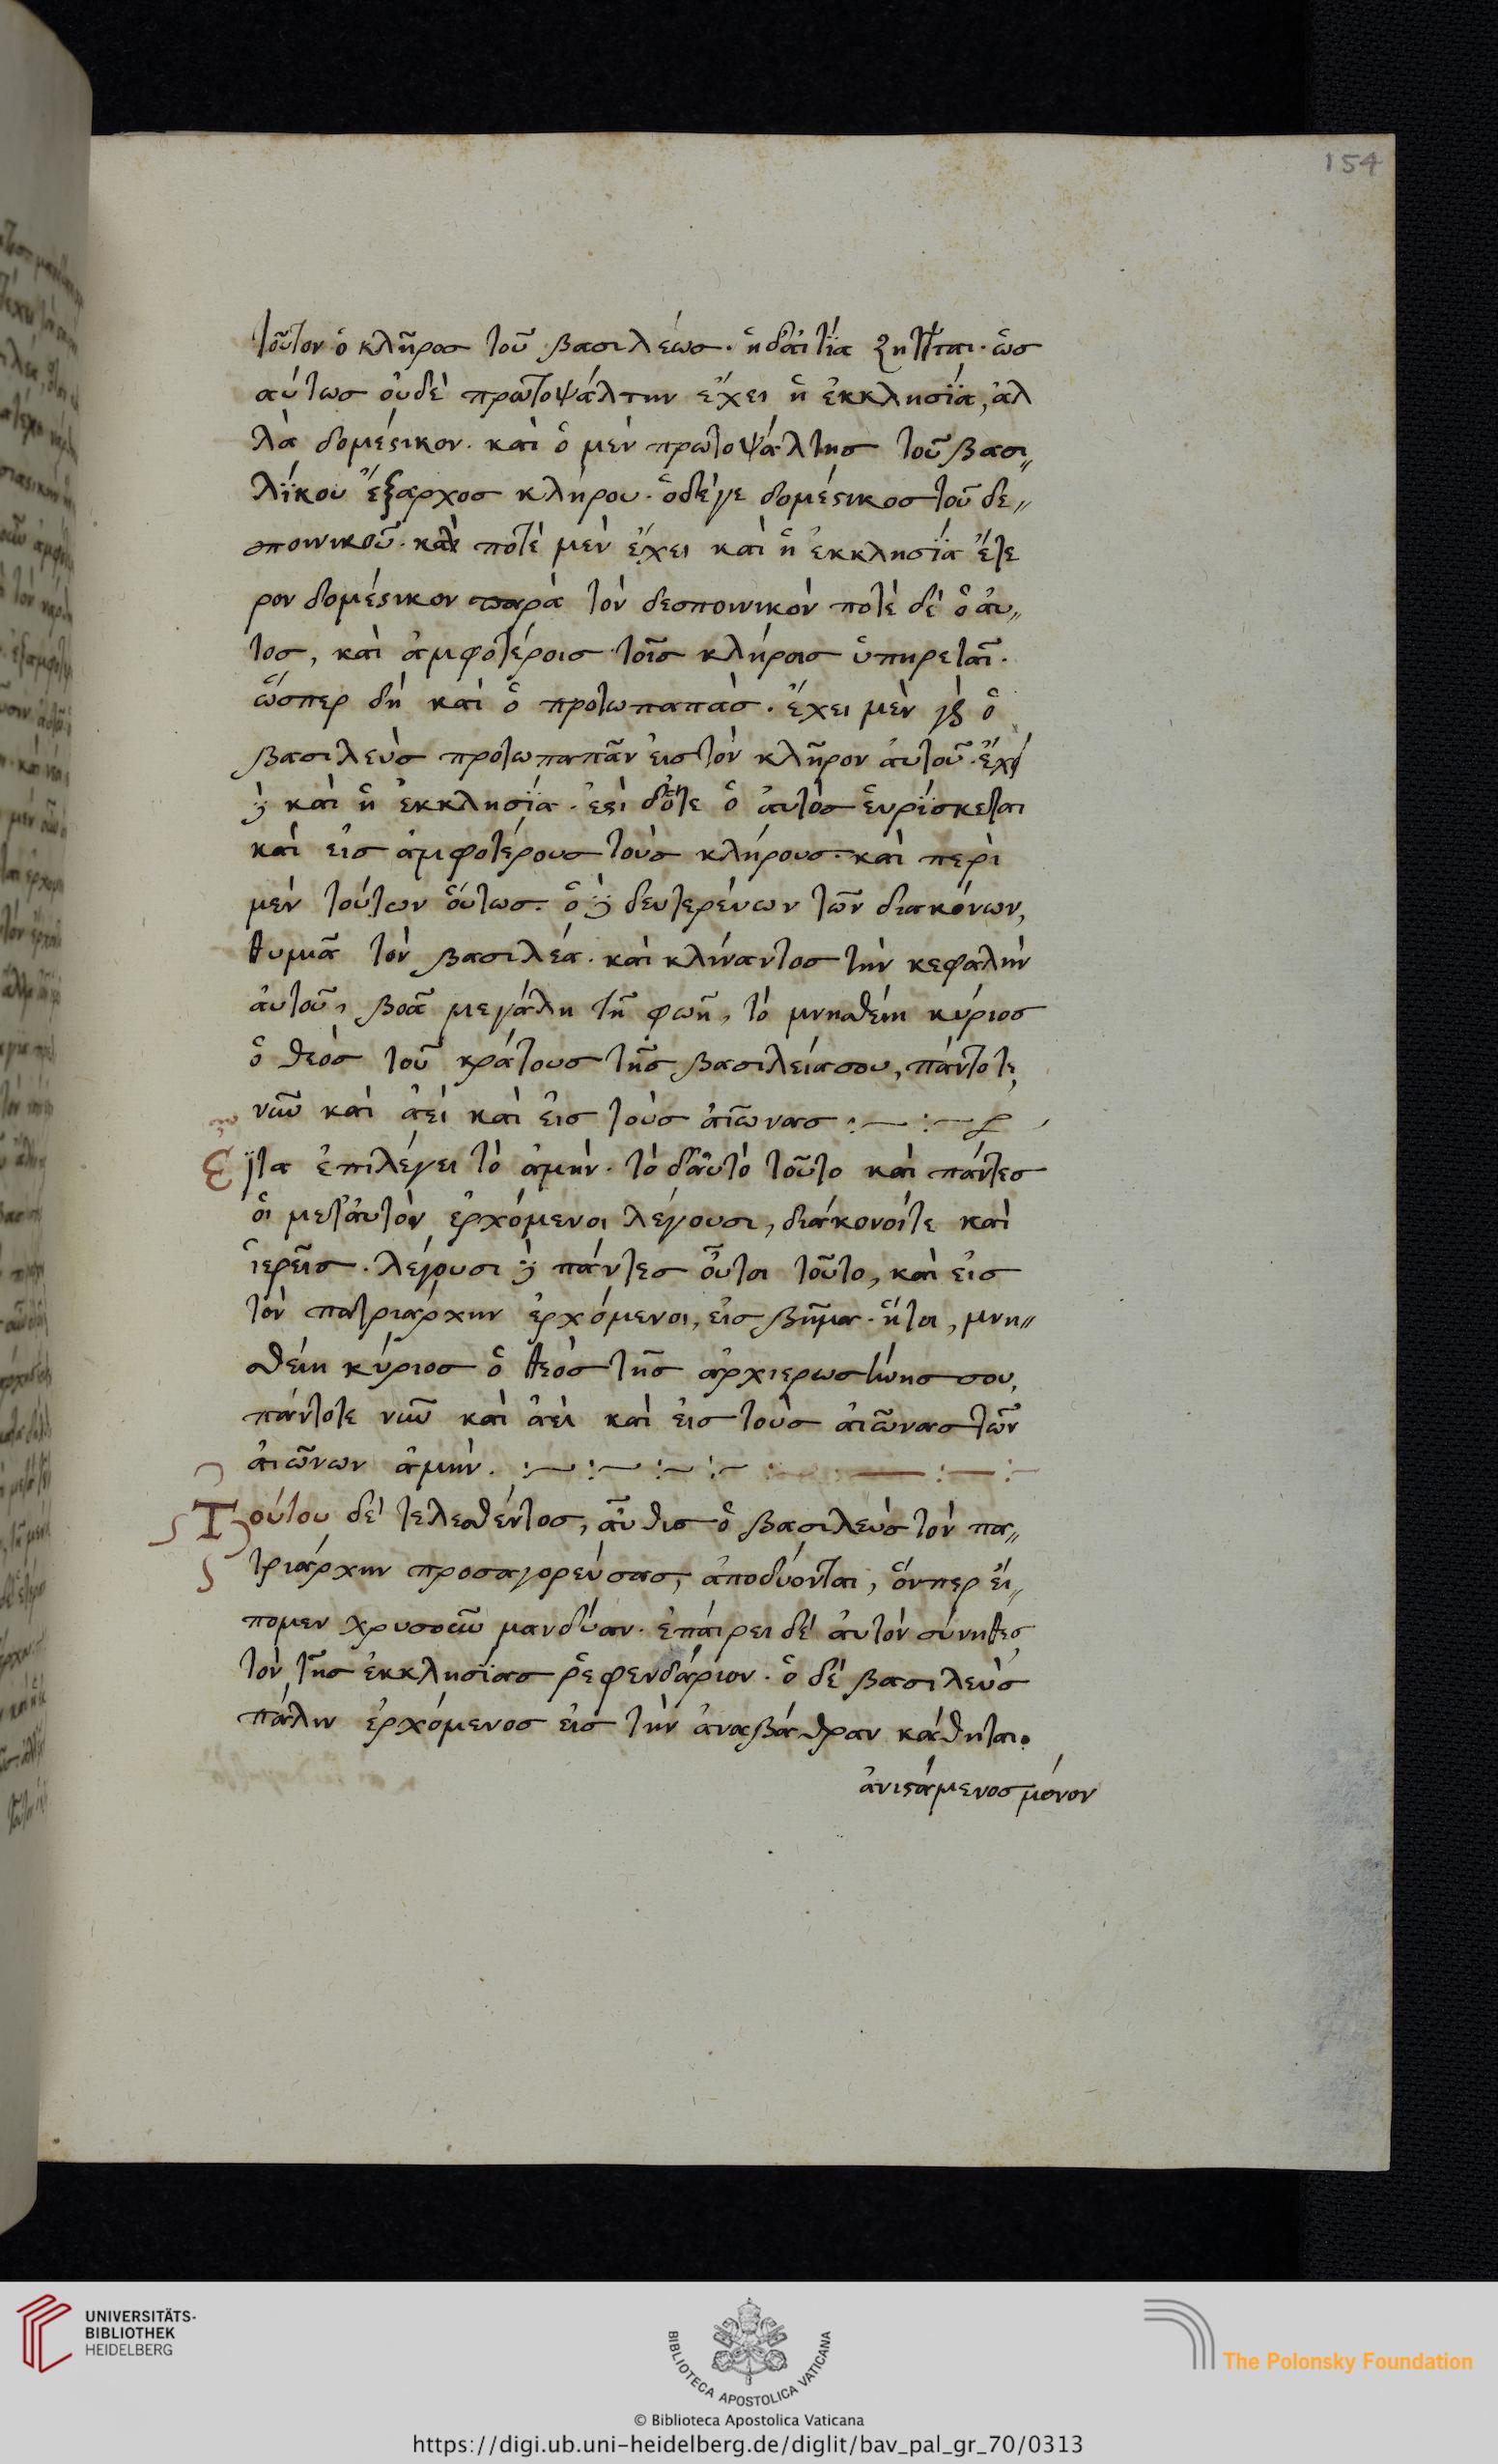 154
τοῦτον ὁ κλῆρος τοῦ βασιλέως. ἡ δ᾽ αἰτία ζητεῖται. ὡσ
αύτως οὐδὲ πρωτοψάλτην ἔχει ἡ ἐκκλησία, ἀλ
λὰ δομέστικον. καὶ ὁ μὲν πρωτοψάλτης τοῦ βασι„
λίκου ἔξαρχος κλήρου. ὁ δέ γε δομέστικος τοῦ δε„
σποινικοῦ. καὶ ποτὲ μὲν ἔχει καὶ ἡ ἐκκλησία ἕτε
ρον δομέστικον παρὰ τὸν δεσποινικόν ποτὲ δὲ ὁ αὐ„
τος, καὶ ἀμφοτέροις τοῖς κλήροις ὑπηρετεῖ.
ὥσπερ δὴ καὶ ὁ προτωπαπάς. ἔχει μὲν γὰρ ὁ
βασιλεὺς προτωπαπᾶν εἰς τὸν κλῆρον αὐτοῦ. ἔχει
δὲ καὶ ἡ ἐκκλησία. ἔστι δ᾽ ὅτε ὁ αὐτὸς εὑρίσκεται
καὶ εἰς ἀμφοτέρους τοὺς κλήρους. καὶ περὶ
μὲν τούτων οὕτως. ὁ δὲ δευτερεύων τῶν διακόνων,
θυμιᾶ τὸν βασιλέα. καὶ κλίναντος τὴν κεφαλὴν
αὐτοῦ, βοᾶ μεγάλη τῆ φωνῆ, τὸ μνησθείη κύριος
ὁ θεὸς τοῦ κράτους τῆς βασιλείας σου, πάντοτε,
νῦν καὶ ἀεὶ καὶ εἰς τοὺς αἰῶνας :— :—
Εἶτα ἐπιλέγει τὸ ἀμήν. τὸ δ᾽ αὐτὸ τοῦτο καὶ πάντες
οἱ μετ᾽ αὐτὸν ἐρχόμενοι λέγουσι, διάκονοί τε καὶ
ἱερεῖς. λέγουσι δὲ πάντες οὗτοι τοῦτο, καὶ εἰς
τὸν πατριάρχην ἐρχόμενοι, εἰς βῆμα. ἤτοι, μνη„
σθείη κύριος ὁ θεὸς τῆς ἀρχιερωσύνης σου,
πάντοτε νῦν καὶ ἀεὶ καὶ εἰς τοὺς αἰῶνας τῶν
αἰώνων ἀμήν. :— :— :— :— :— :— :—
Τούτου δὲ τελεσθέντος, αὖθις ὁ βασιλεὺς τὸν πα„
τριάρχην προσαγορεύσας, ἀποδύονται, ὅνπερ εἴ„
πομεν χρυσοῦν μανδύαν. ἐπαίρει δὲ αὐτὸν σύνηθες
τὸν τῆς ἐκκλησίας ῥεφενδάριον. ὁ δὲ βασιλεὺς
πάλιν ἐρχόμενος εἰς τὴν ἀναβάθραν κάθηται.
ἀνιστάμενος μόνον
UNIVERSITÄTS-
BIBLIOTHEK
HEIDELBERG
BIBLIOTECA APOSTOLICA VATICANA
The Polonsky Foundation
© Biblioteca Apostolica Vaticana
https://digi.ub.uni-heidelberg.de/diglit/bav_pal_gr_70/0313